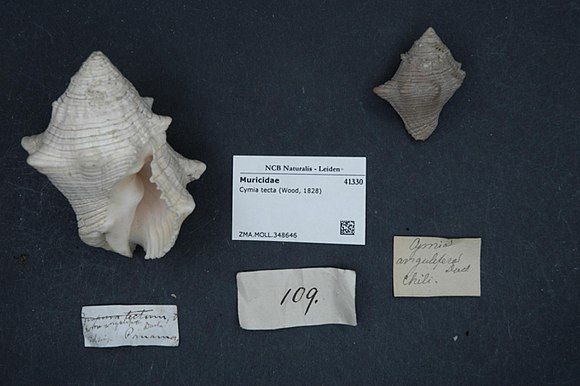 NCB Naturalis - Leiden
Muricidae 41330
Cymia tecta (Wood, 1828)
ZMA.MOLL.348646
Cymia
angulifera
Ducl
Chili.
109.
tectum,
Ducl
Panama